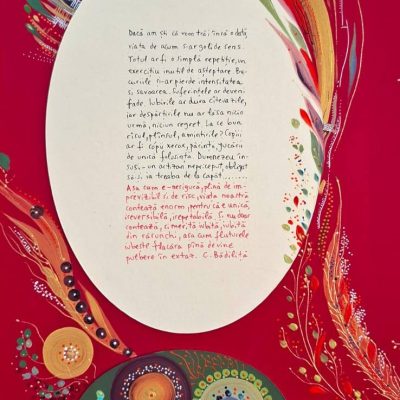 Dacă am ști că vom trăi, încă o dată,
viața de acum s-ar goli de sens.
Totul ar fi o simplă repetiție, un
exercițiu inutil de așteptare. Bu-
curiile și-ar pierde intensitatea
și savoarea. Suferințele ar deveni
fade. Iubirile ar dura cîteva zile,
iar despărțirile nu ar lăsa nicio
urmă, niciun regret. La ce bun
rîsul, plînsul, amintirile? Copiii
ar fi copii xerox, păcința, jucării
de unică folosință. Dumnezeu în-
suși - un artizan nepriceput, obligat
să-și ia treaba de la capăt.......
Așa cum e - nesigură, plină de im-
previzibil și de risc, viața noastră
contează enorm, pentru că e unică,
ireversibilă, irepetabilă. Și nu doar
contează, ci merită iubită, iubită
din rărunchi, așa cum fluturele
iubește flacăra pînă devine
pulbere în extaz. C. Bădiliță